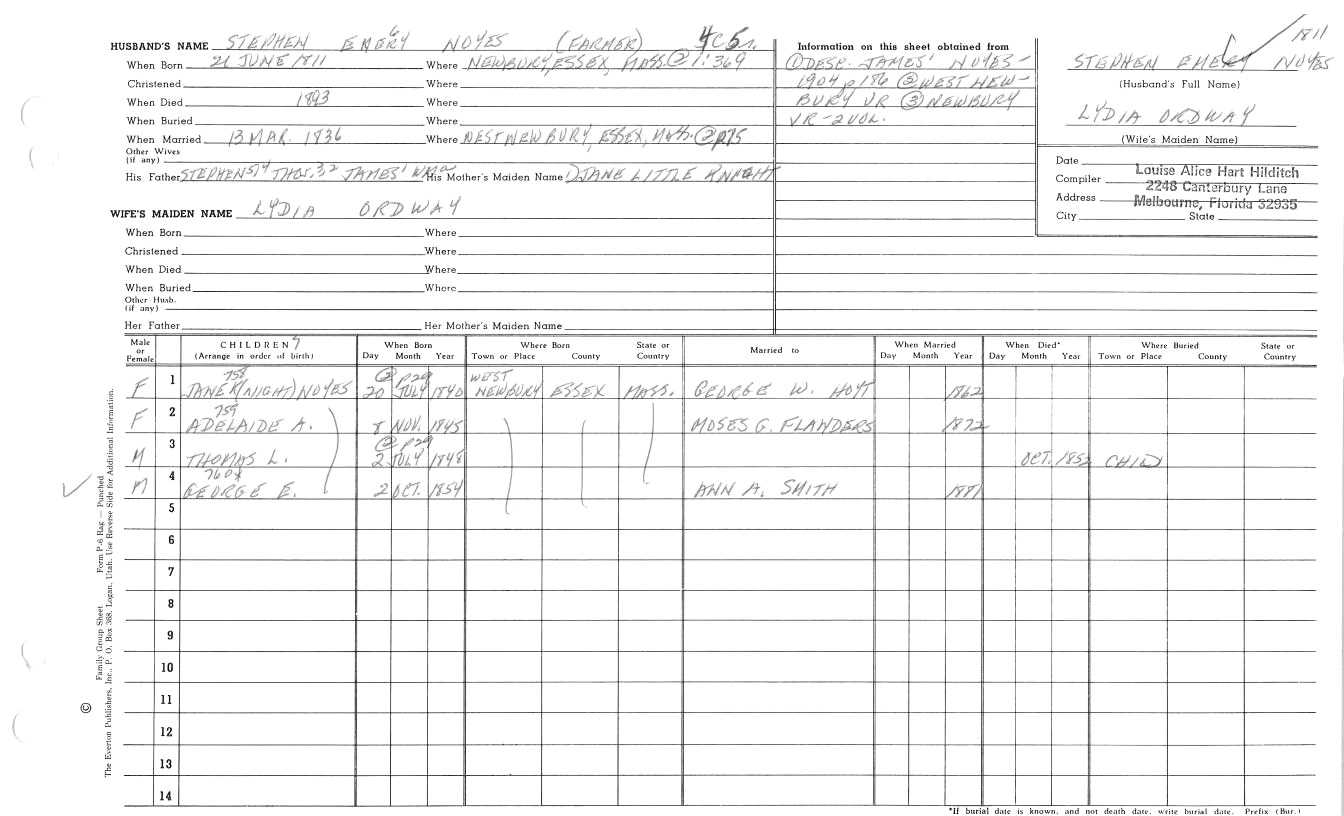 HUSBAND'S NAME STEPHEN EMERY 6 NOYES (FARMER)
When Born 21 JUNE 1811 Where NEWBURY, ESSEX, MASS. @ 1:369
Christened Where
When Died 1893 Where
When Buried Where
When Married 13 MAR. 1836 Where WEST NEWBURY, ESSEX, MASS. @ p275
Other Wives
(if any)
His Father STEPHEN 5, 4 THOS. 3, 2 JAMES' His Mother's Maiden Name JANE LITTLE KNIGHT
WIFE'S MAIDEN NAME LYDIA ORDWAY
When Born Where
Christened Where
When Died Where
When Buried Where
Other Husb.
(if any)
Her Father Her Mother's Maiden Name
Information on this sheet obtained from
① DESP. JAMES' NOYES -
1904, p 186 ② WEST NEW-
BURY VR ③ NEWBURY
VR - 2 VOL.
1811
STEPHEN EMERY NOYES
(Husband's Full Name)
LYDIA ORDWAY
(Wife's Maiden Name)
Date
Compiler Louise Alice Hart Hilditch
Address 2248 Canterbury Lane
Melbourne, Florida 32935
City State
Male or Female CHILDREN 7 (Arrange in order of birth) When Born Day Month Year Where Born Town or Place County State or Country Married to When Married Day Month Year When Died* Day Month Year Where Buried Town or Place County State or Country
758 @ p29 WEST
F 1 JANE K(NIGHT) NOYES 20 JULY 1840 NEWBURY ESSEX MASS. GEORGE W. HOYT 1862
759
F 2 ADELAIDE A. 8 NOV. 1845 MOSES G. FLANDERS 1872
@ p29
M 3 THOMAS L. 2 JULY 1848 OCT. 1852 CHILD
760*
M 4 GEORGE E. 2 OCT. 1854 ANN A. SMITH 1881
5
6
7
8
9
10
11
12
13
14
*If burial date is known, and not death date, write burial date. Prefix (Bur.)
© Family Group Sheet Form P-6 Rag — Punched
The Everton Publishers, Inc., P. O. Box 368, Logan, Utah. Use Reverse Side for Additional Information.